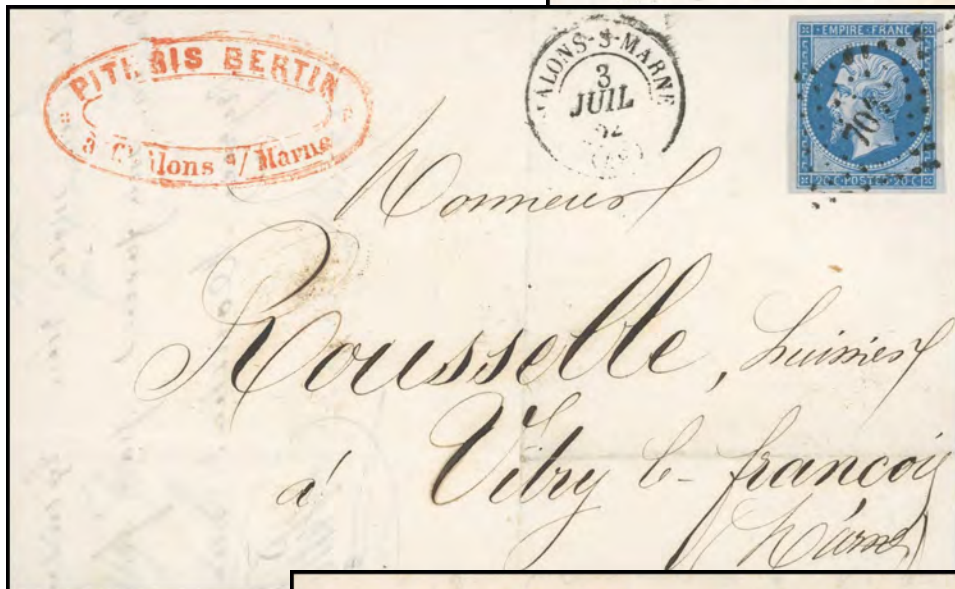 BERTIN
à lons s/ Marne
ALONS-S-MARNE
3
JUIL
EMPIRE FRANC
704
20 C POSTES 20 C
Monsieur
Rousselle, huissier
à Vitry le françois
Marne